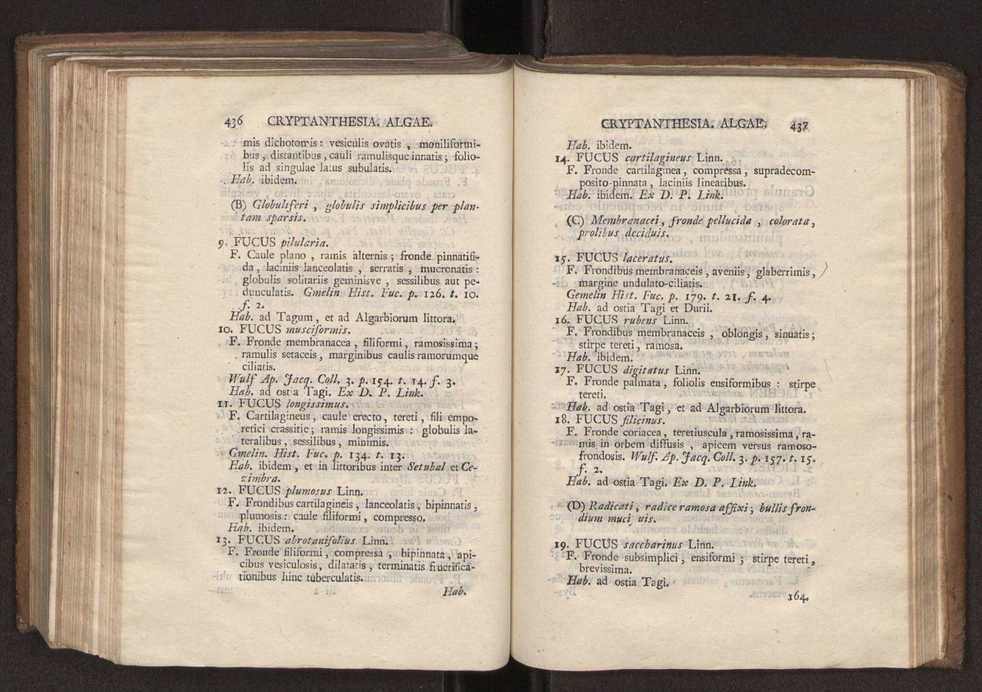 436 CRYPTANTHESIA. ALGAE.
mis dichotomis: vesiculis ovatis, moniliformi-
bus, distantibus, cauli ramulisque innatis; folio-
lis ad singulae latus subulatis.
Hab. ibidem.
(B) Globuliferi, globulis simplicibus per plan-
tam sparsis.
9. FUCUS pilularia.
F. Caule plano, ramis alternis; fronde pinnatifi-
da, laciniis lanceolatis, serratis, mucronatis:
globulis solitariis geminisve, sessilibus aut pe-
dunculatis. Gmelin Hist. Fuc. p. 126. t. 10.
f. 2.
Hab. ad Tagum, et ad Algarbiorum littora.
10. FUCUS musciformis.
F. Fronde membranacea, filiformi, ramosissima;
ramulis setaceis, marginibus caulis ramorumque
ciliatis.
Wulf Ap. Jacq. Coll. 3. p. 154. t. 14. f. 3.
Hab. ad ostia Tagi. Ex D. P. Link.
11. FUCUS longissimus.
F. Cartilagineus, caule erecto, tereti, fili empo-
retici crassitie; ramis longissimis: globulis la-
teralibus, sessilibus, minimis.
Gmelin. Hist. Fuc. p. 134. t. 13.
Hab. ibidem, et in littoribus inter Setubal et Ce-
zimbra.
12. FUCUS plumosus Linn.
F. Frondibus cartilagineis, lanceolatis, bipinnatis,
plumosis: caule filiformi, compresso.
Hab. ibidem.
13. FUCUS abrotanifolius Linn.
F. Fronde filiformi, compressa, bipinnata, api-
cibus vesiculosis, dilatatis, terminatis fructifica-
tionibus hinc tuberculatis.
Hab.
CRYPTANTHESIA. ALGAE. 437
Hab. ibidem.
14. FUCUS cartilagineus Linn.
F. Fronde cartilaginea, compressa, supradecom-
posito-pinnata, laciniis linearibus.
Hab. ibidem. Ex D. P. Link.
(C) Membranacei, fronde pellucida, colorata,
prolibus deciduis.
15. FUCUS laceratus.
F. Frondibus membranaceis, aveniis, glaberrimis,
margine undulato-ciliatis.
Gemelin Hist. Fuc. p. 179. t. 21. f. 4.
Hab. ad ostia Tagi et Durii.
16. FUCUS rubens Linn.
F. Frondibus membranaceis, oblongis, sinuatis;
stirpe tereti, ramosa.
Hab. ibidem.
17. FUCUS digitatus Linn.
F. Fronde palmata, foliolis ensiformibus: stirpe
tereti.
Hab. ad ostia Tagi, et ad Algarbiorum littora.
18. FUCUS filicinus.
F. Fronde coriacea, teretiuscula, ramosissima, ra-
mis in orbem diffusis, apicem versus ramoso-
frondosis. Wulf. Ap. Jacq. Coll. 3. p. 157. t. 15.
f. 2.
Hab. ad ostia Tagi. Ex D. P. Link.
(D) Radicati, radice ramosa affixi; bullis fron-
dium
19. FUCUS saccharinus Linn.
F. Fronde subsimplici, ensiformi; stirpe tereti,
brevissima.
Hab. ad ostia Tagi.
164.